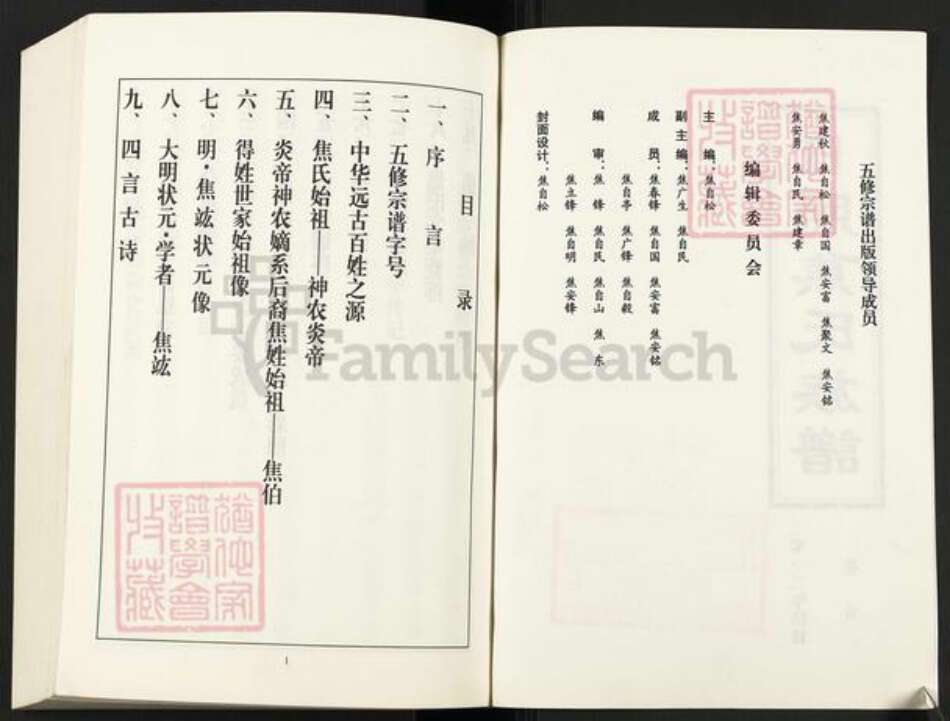 五修宗谱出版领导成员
焦建秋 焦自松 焦自国 焦安富 焦聚文 焦安铭
焦安勇 焦自民 焦建章
编辑委员会
主编：焦自松
副主编：焦广生 焦自民
成员：焦春锋 焦自国 焦安富 焦安铭
焦自亭 焦广锋 焦自毅
编审：焦锋 焦自民 焦自山 焦东
焦立锋 焦自明 焦安锋
封面设计：焦自松
目录
一、序言
二、五修宗谱字号
三、中华远古百姓之源
四、焦氏始祖——神农炎帝
五、炎帝神农嫡系后裔焦姓始祖——焦伯
六、得姓世家始祖像
七、明·焦竑状元像
八、大明状元·学者——焦竑
九、四言古诗
1
FamilySearch
猶他家
譜學會
收藏
猶他家
譜學會
收藏